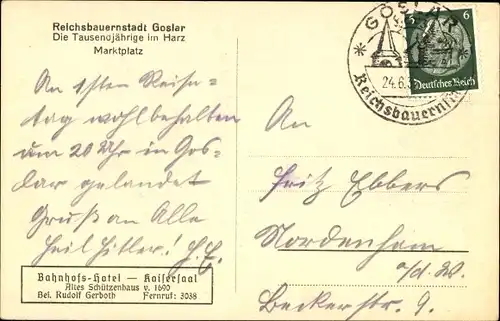 Reichsbauernstadt Goslar
Die Tausendjährige im Harz
Marktplatz
An 1sten Reise-
tag wohlbehalten
um 20 Uhr in Gos-
lar gelandet
Gruß an Alle
Heil Hitler! H.E.
Bahnhofs-Hotel — Kaisersaal
Altes Schützenhaus v. 1690
Bes. Rudolf Gerboth Fernruf: 3038
GOSLAR
24.6.3
Reichsbauernst
6
Deutsches Reich
An
Fritz Ebbers
Nordenham
o/d. W.
Beckerstr. 9.